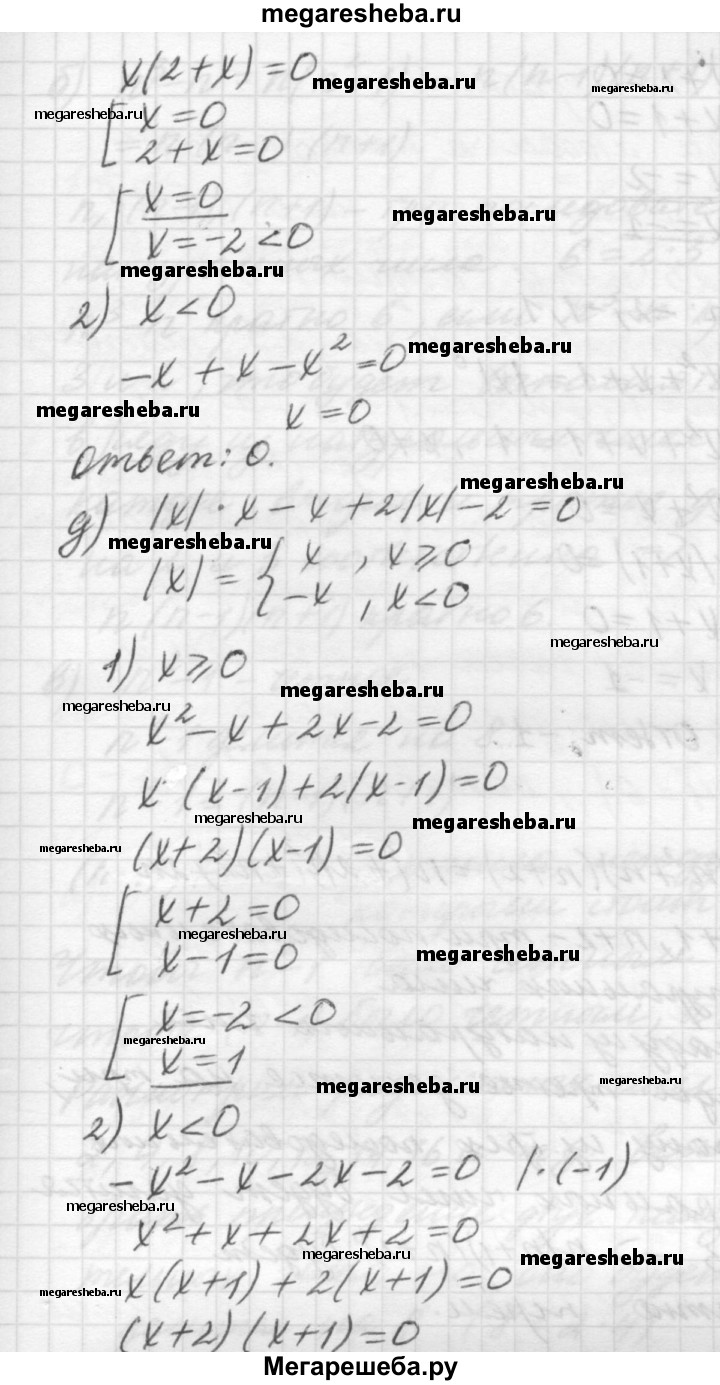 megaresheba.ru
x(2+x)=0
megaresheba.ru
megaresheba.ru
megaresheba.ru
[ x=0
2+x=0
[ x=0
x=-2<0
megaresheba.ru
megaresheba.ru
2) x<0
-x+x-x²=0
megaresheba.ru
megaresheba.ru
x=0
Ответ: 0.
megaresheba.ru
д) |x|·x-x+2|x|-2=0
megaresheba.ru
|x|={ x, x⩾0
-x, x<0
megaresheba.ru
1) x⩾0
megaresheba.ru
megaresheba.ru
x²-x+2x-2=0
x·(x-1)+2(x-1)=0
megaresheba.ru
megaresheba.ru
megaresheba.ru
(x+2)(x-1)=0
[ x+2=0
megaresheba.ru
x-1=0
megaresheba.ru
[ x=-2<0
megaresheba.ru
x=1
megaresheba.ru
megaresheba.ru
2) x<0
-x²-x-2x-2=0 |·(-1)
megaresheba.ru
x²+x+2x+2=0
megaresheba.ru
megaresheba.ru
megaresheba.ru
x(x+1)+2(x+1)=0
(x+2)(x+1)=0
Мегарешеба.ру